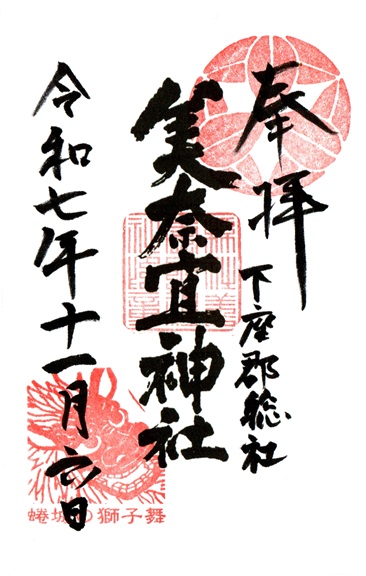 奉拝
下座郡総社
美奈宜神社
令和七年十一月六日
蜷城の獅子舞